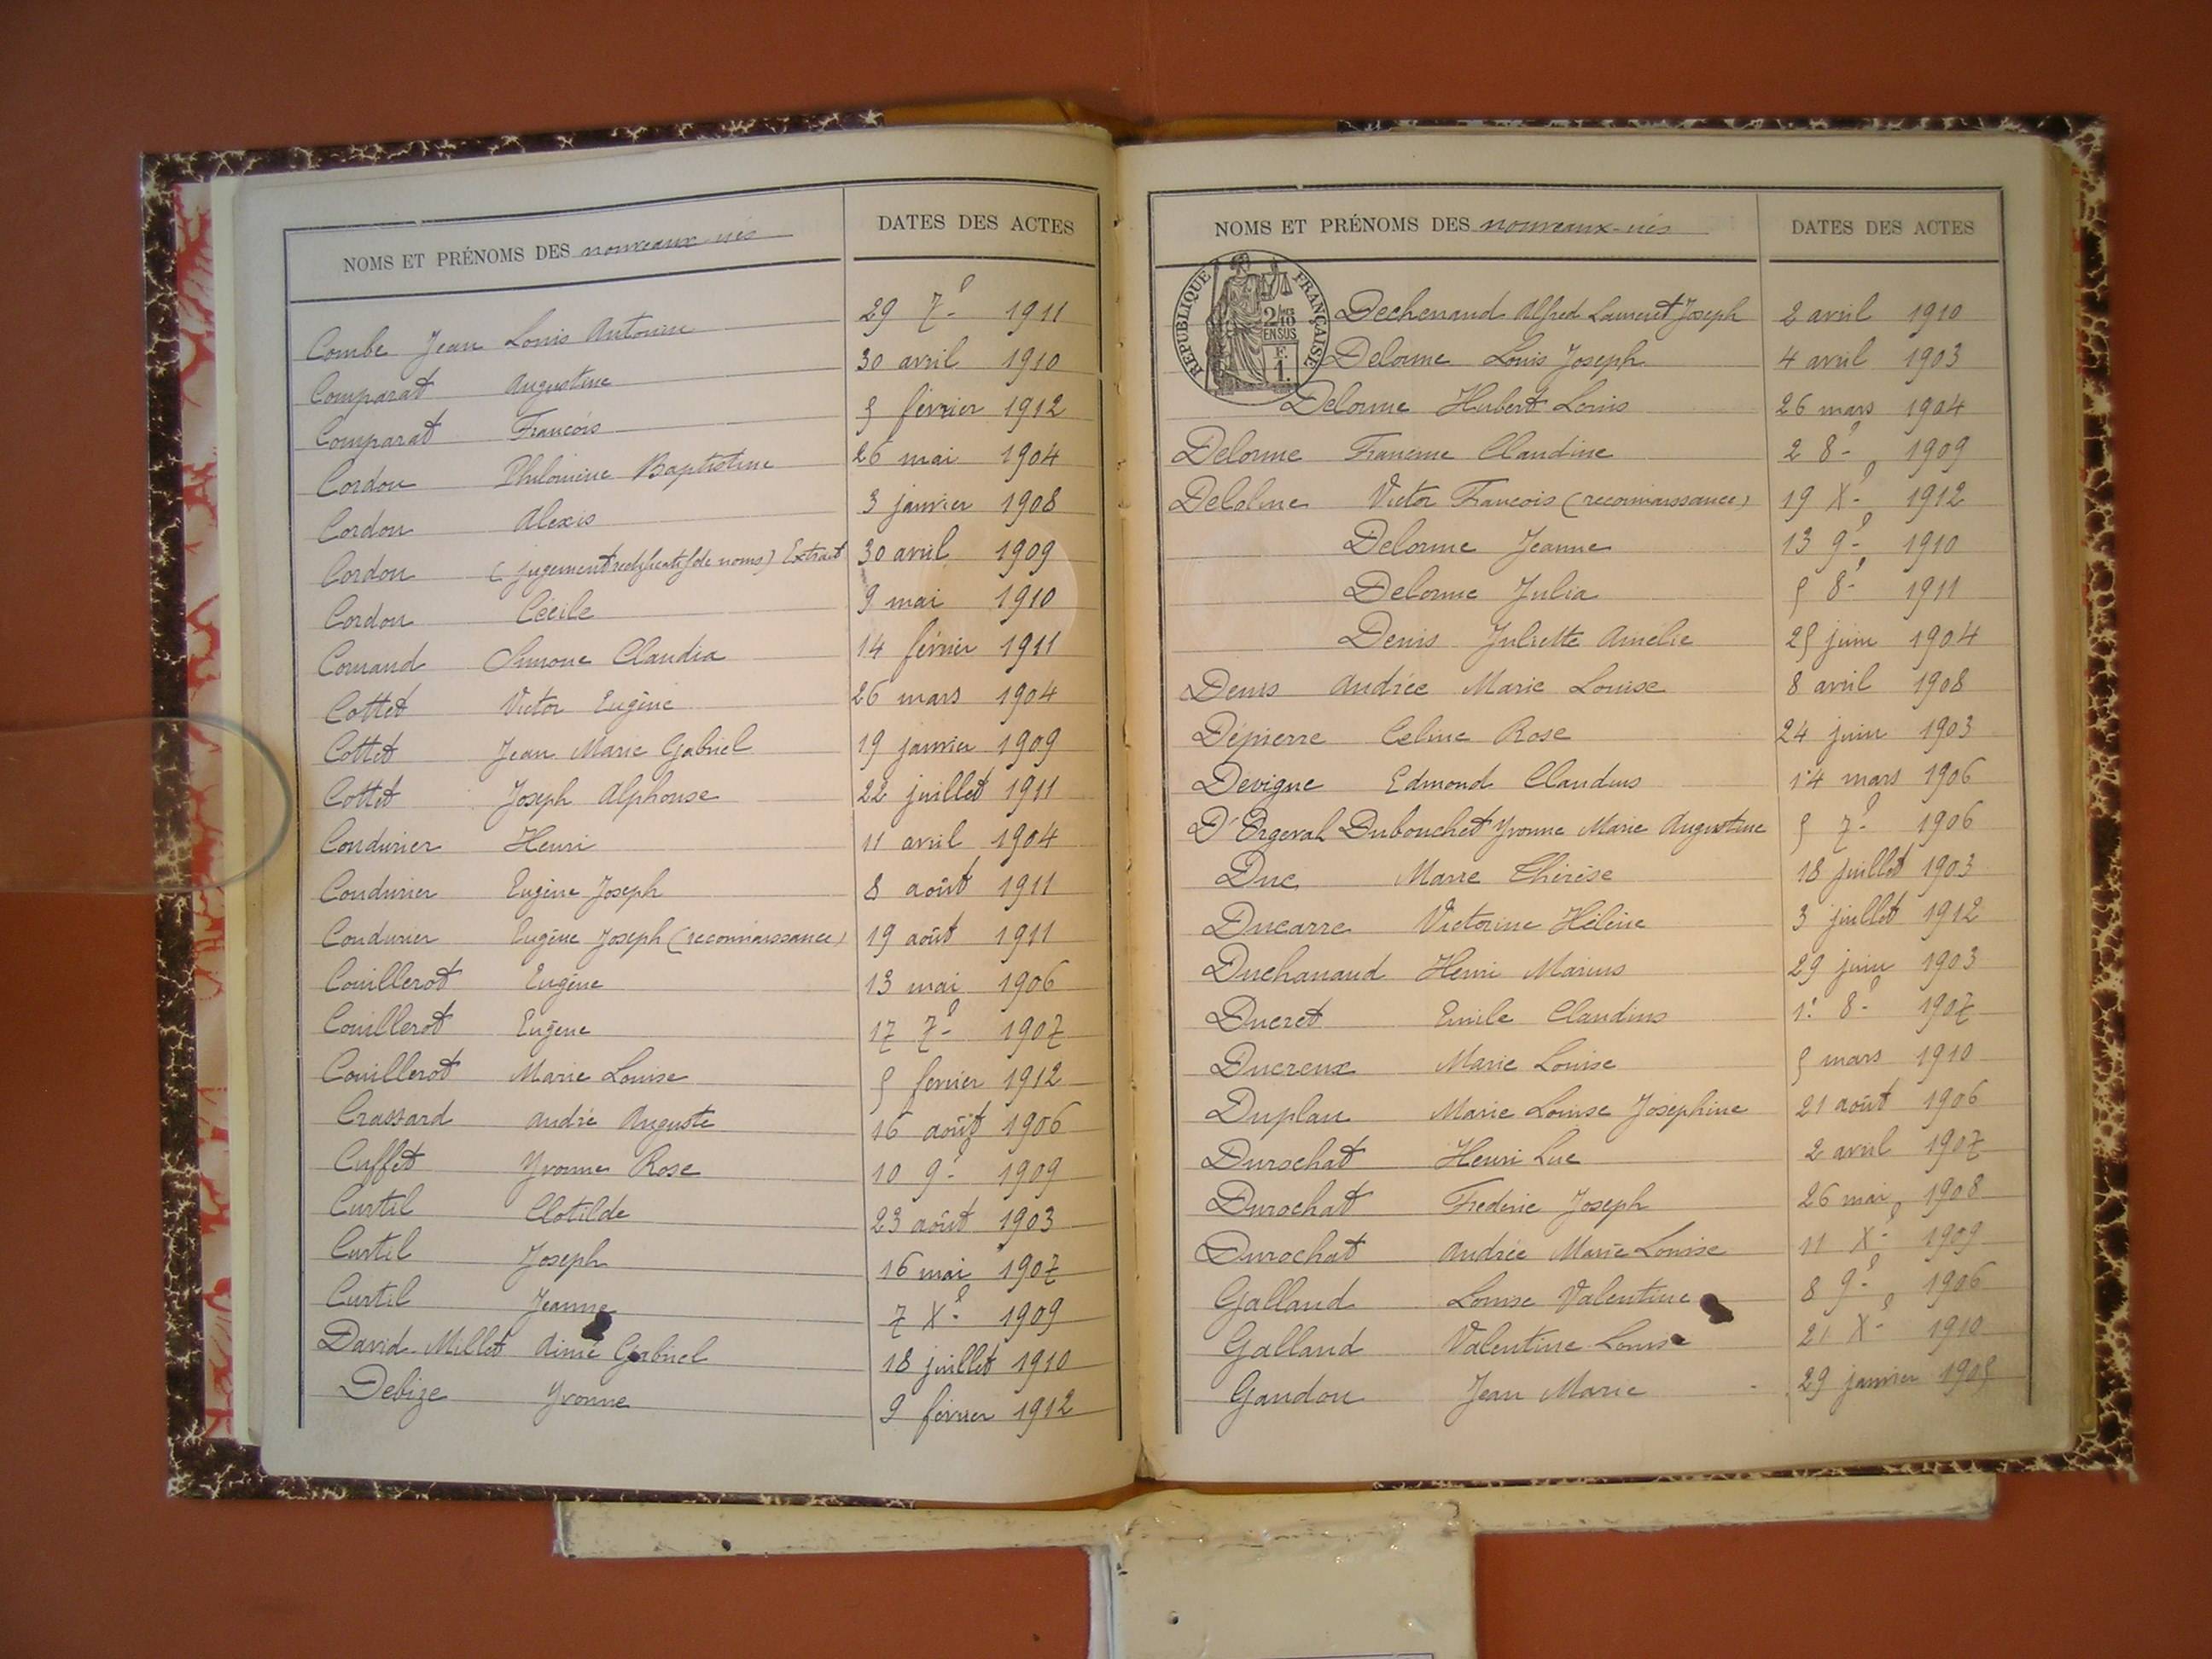 NOMS ET PRÉNOMS DES nouveaux-nés DATES DES ACTES
Combe Jean Louis Antonin 29 7e 1911
Comparat Augustine 30 avril 1910
Comparat François 5 février 1912
Cordon Philomène Baptistine 26 mai 1904
Cordon Alexis 3 janvier 1908
Cordon (jugement rectificatif de noms) Extrait 30 avril 1909
Cordon Cécile 9 mai 1910
Cornand Simone Claudia 14 février 1911
Cottet Victor Eugène 26 mars 1904
Cottet Jean Marie Gabriel 19 janvier 1909
Cottet Joseph Alphonse 22 juillet 1911
Coudurier Henri 11 avril 1904
Coudurier Eugène Joseph 8 août 1911
Coudurier Eugène Joseph (reconnaissance) 19 août 1911
Couillerot Eugène 13 mai 1906
Couillerot Eugène 17 7e 1907
Couillerot Marie Louise 5 février 1912
Crassard André Auguste 16 août 1906
Cuffet Yvonne Rose 10 9e 1909
Curtil Clotilde 23 août 1903
Curtil Joseph 16 mai 1907
Curtil Jeanne 7 Xe 1909
David-Millet Aimé Gabriel 18 juillet 1910
Debize Yvonne 9 février 1912
NOMS ET PRÉNOMS DES nouveaux-nés DATES DES ACTES
RÉPUBLIQUE FRANÇAISE
2/10 EN SUS
F. 1.
Dechenaud Alfred Laurent Joseph 2 avril 1910
Delorme Louis Joseph 4 avril 1903
Delorme Hubert Louis 26 mars 1904
Delorme Francine Claudine 2 8e 1909
Delolme Victor François (reconnaissance) 19 Xe 1912
Delorme Jeanne 13 9e 1910
Delorme Julia 5 8e 1911
Denis Juliette Amélie 25 juin 1904
Denis Andrée Marie Louise 8 avril 1908
Dépierre Celine Rose 24 juin 1903
Devigne Edmond Claudius 14 mars 1906
D'Orgeval Dubouchet Yvonne Marie Augustine 5 7e 1906
Duc Marie Thérèse 18 juillet 1903
Ducarre Victorine Hélène 3 juillet 1912
Duchanaud Henri Marius 29 juin 1903
Ducret Emile Claudius 1er 8e 1907
Ducreux Marie Louise 5 mars 1910
Duplan Marie Louise Joséphine 21 août 1906
Durochat Henri Luc 2 avril 1907
Durochat Frédéric Joseph 26 mai 1908
Durochat Andrée Marie Louise 11 Xe 1909
Galland Louise Valentine 8 9e 1906
Galland Valentine Louise 21 Xe 1910
Gandon Jean Marie 29 janvier 1905